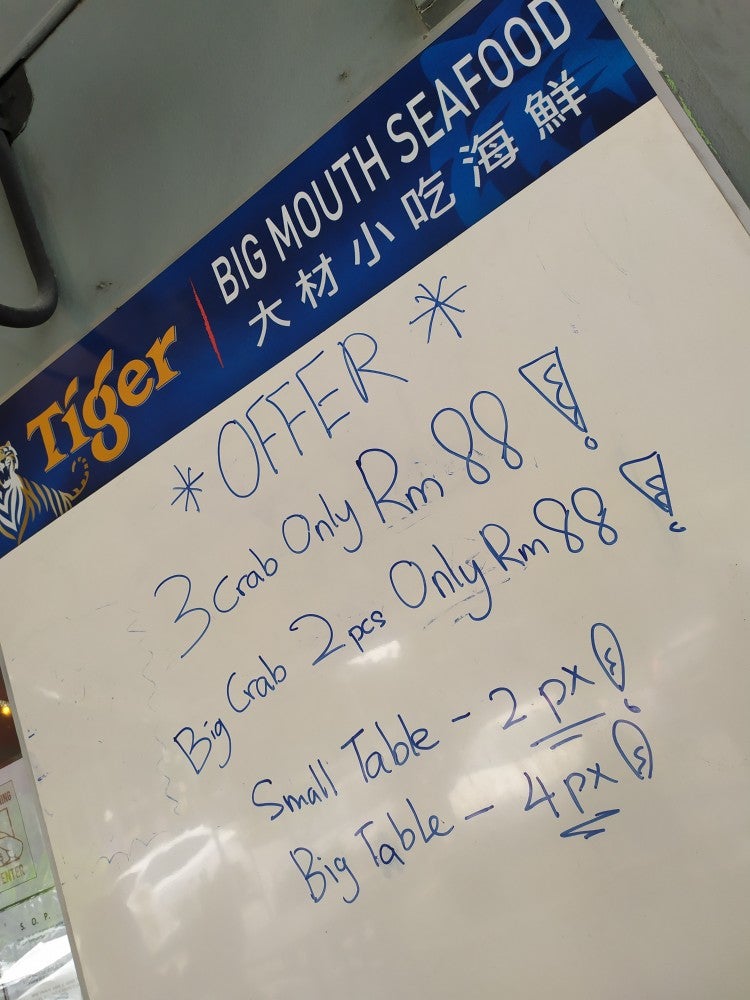 Tiger
BIG MOUTH SEAFOOD
大材小吃海鮮
* OFFER *
3 Crab Only Rm 88 !
Big Crab 2 pcs Only Rm 88 !
Small Table - 2 px !
Big Table - 4 px !
S. O. P.